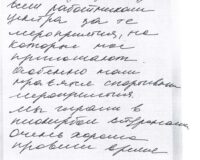 всем работникам
центра за те
мероприятия, на
которые нас
приглашают.
Особенно нам
нравятся спортивные
мероприятия.
Мы играли в
пионербол с ветеранами.
Очень хорошо
провели время